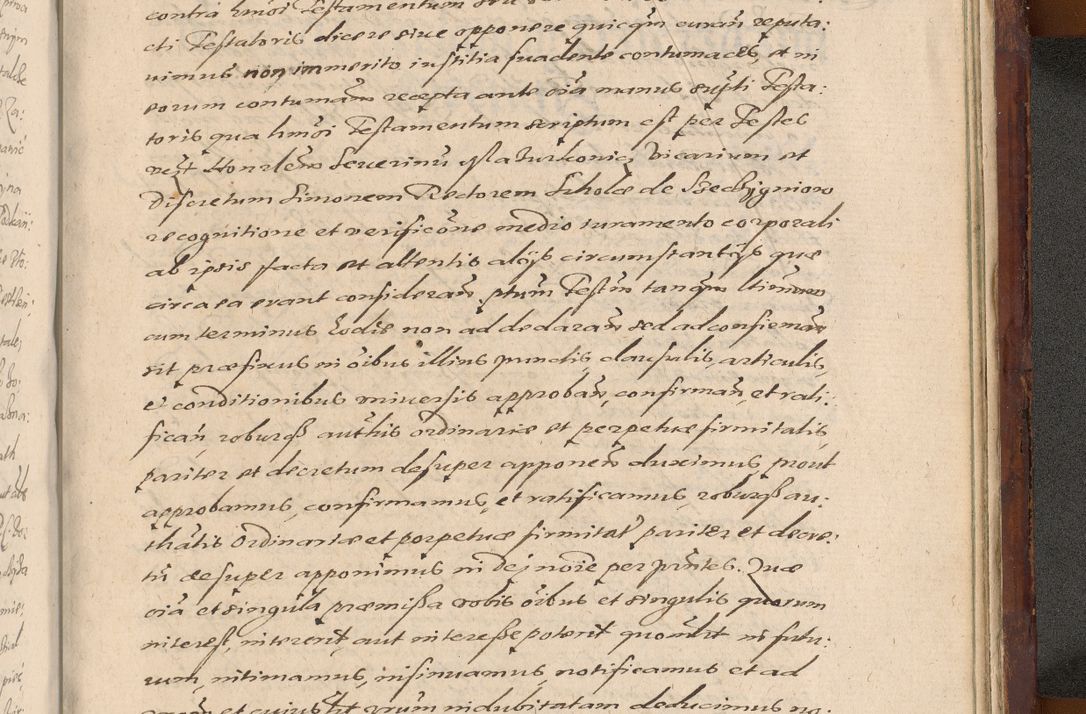 contra hmõi Testamentum
cti Testatoris dicere sive opponere quicqm̃ curañ reputa:
vimus non immerito iustitia suadente contumaces, et in
eorum contumañ recepta ante oĩa manus scrpti Testa:
toris qua hmõi Testamentum scriptum est per Testes
Honrlem Severinũ Vicarium et
Discretum Simonem Rectorem Scholæ de
recognitione et verificõne medio iuramento corporali
ab ipsis facta et attentis alijs circumstantijs quæ
circa ea erant consideran̄ ptum̃ Testm̃ tanqm̃ ltimum
cum terminus hodie non ad declarañ sed ad confirmañ
sit præfixus in oĩbus illius punctis, clausulis, articulis,
et conditionibus universis approbañ, confirmañ, et rati:
ficañ, roburqß authtis ordinariæ et perpetuæ firmitatis,
pariter et decretum desuper apponeñ duximus, prout
approbamus, confirmamus, et ratificamus, roburqß au:
thätis Ordinariæ et perpetuæ firmitat' pariter et decre:
tũ desuper apponimus in Dej noĩe per p̃ntes. Quæ
oĩa et singula præmissa vobis oĩbus et singulis quorum
interest, intererit, aut interesse poterit quomlt in futu:
rum, intimamus, insinuamus, notificamus et ad
et cuiuslibet vrum indubitatam deducimus no: